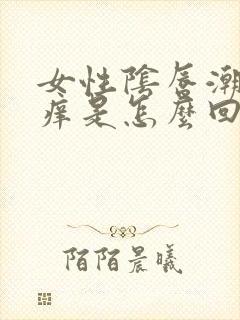 女性陰唇潮
痒是怎麼回
陌陌晨曦